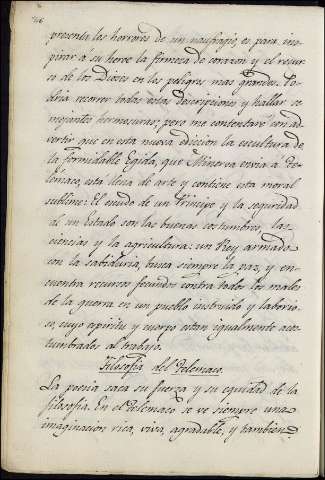 presenta los horrores de un naufragio, es para ins-
pirar á su heroe la firmeza de corazon y el recur
so de los Dioses en los peligros mas grandes. Po-
dria recorrer todas estas descripciones y hallar se
mejantes hermosuras; pero me contentaré con ad-
vertir que en esta nueva edicion la escultura de
la formidable Egida, que Minerva envia á Te-
lémaco, está llena de arte y contiene esta moral
sublime: El escudo de un Principe y la seguridad
de un Estado son las buenas costumbres, las
ciencias y la agricultura: un Rey armado
con la sabiduria, busca siempre la paz, y en-
cuentra recursos fecundos contra todos los males
de la guerra en un pueblo instruido y laborio-
so, cuyo espiritu y cuerpo estan igualmente acos-
tumbrados al trabajo.
Filosofia del Telemaco.
La poesia saca su fuerza y su equidad de la
filosofia. En el Telemaco se ve siempre una
imaginacion rica, viva, agradable, y tambien